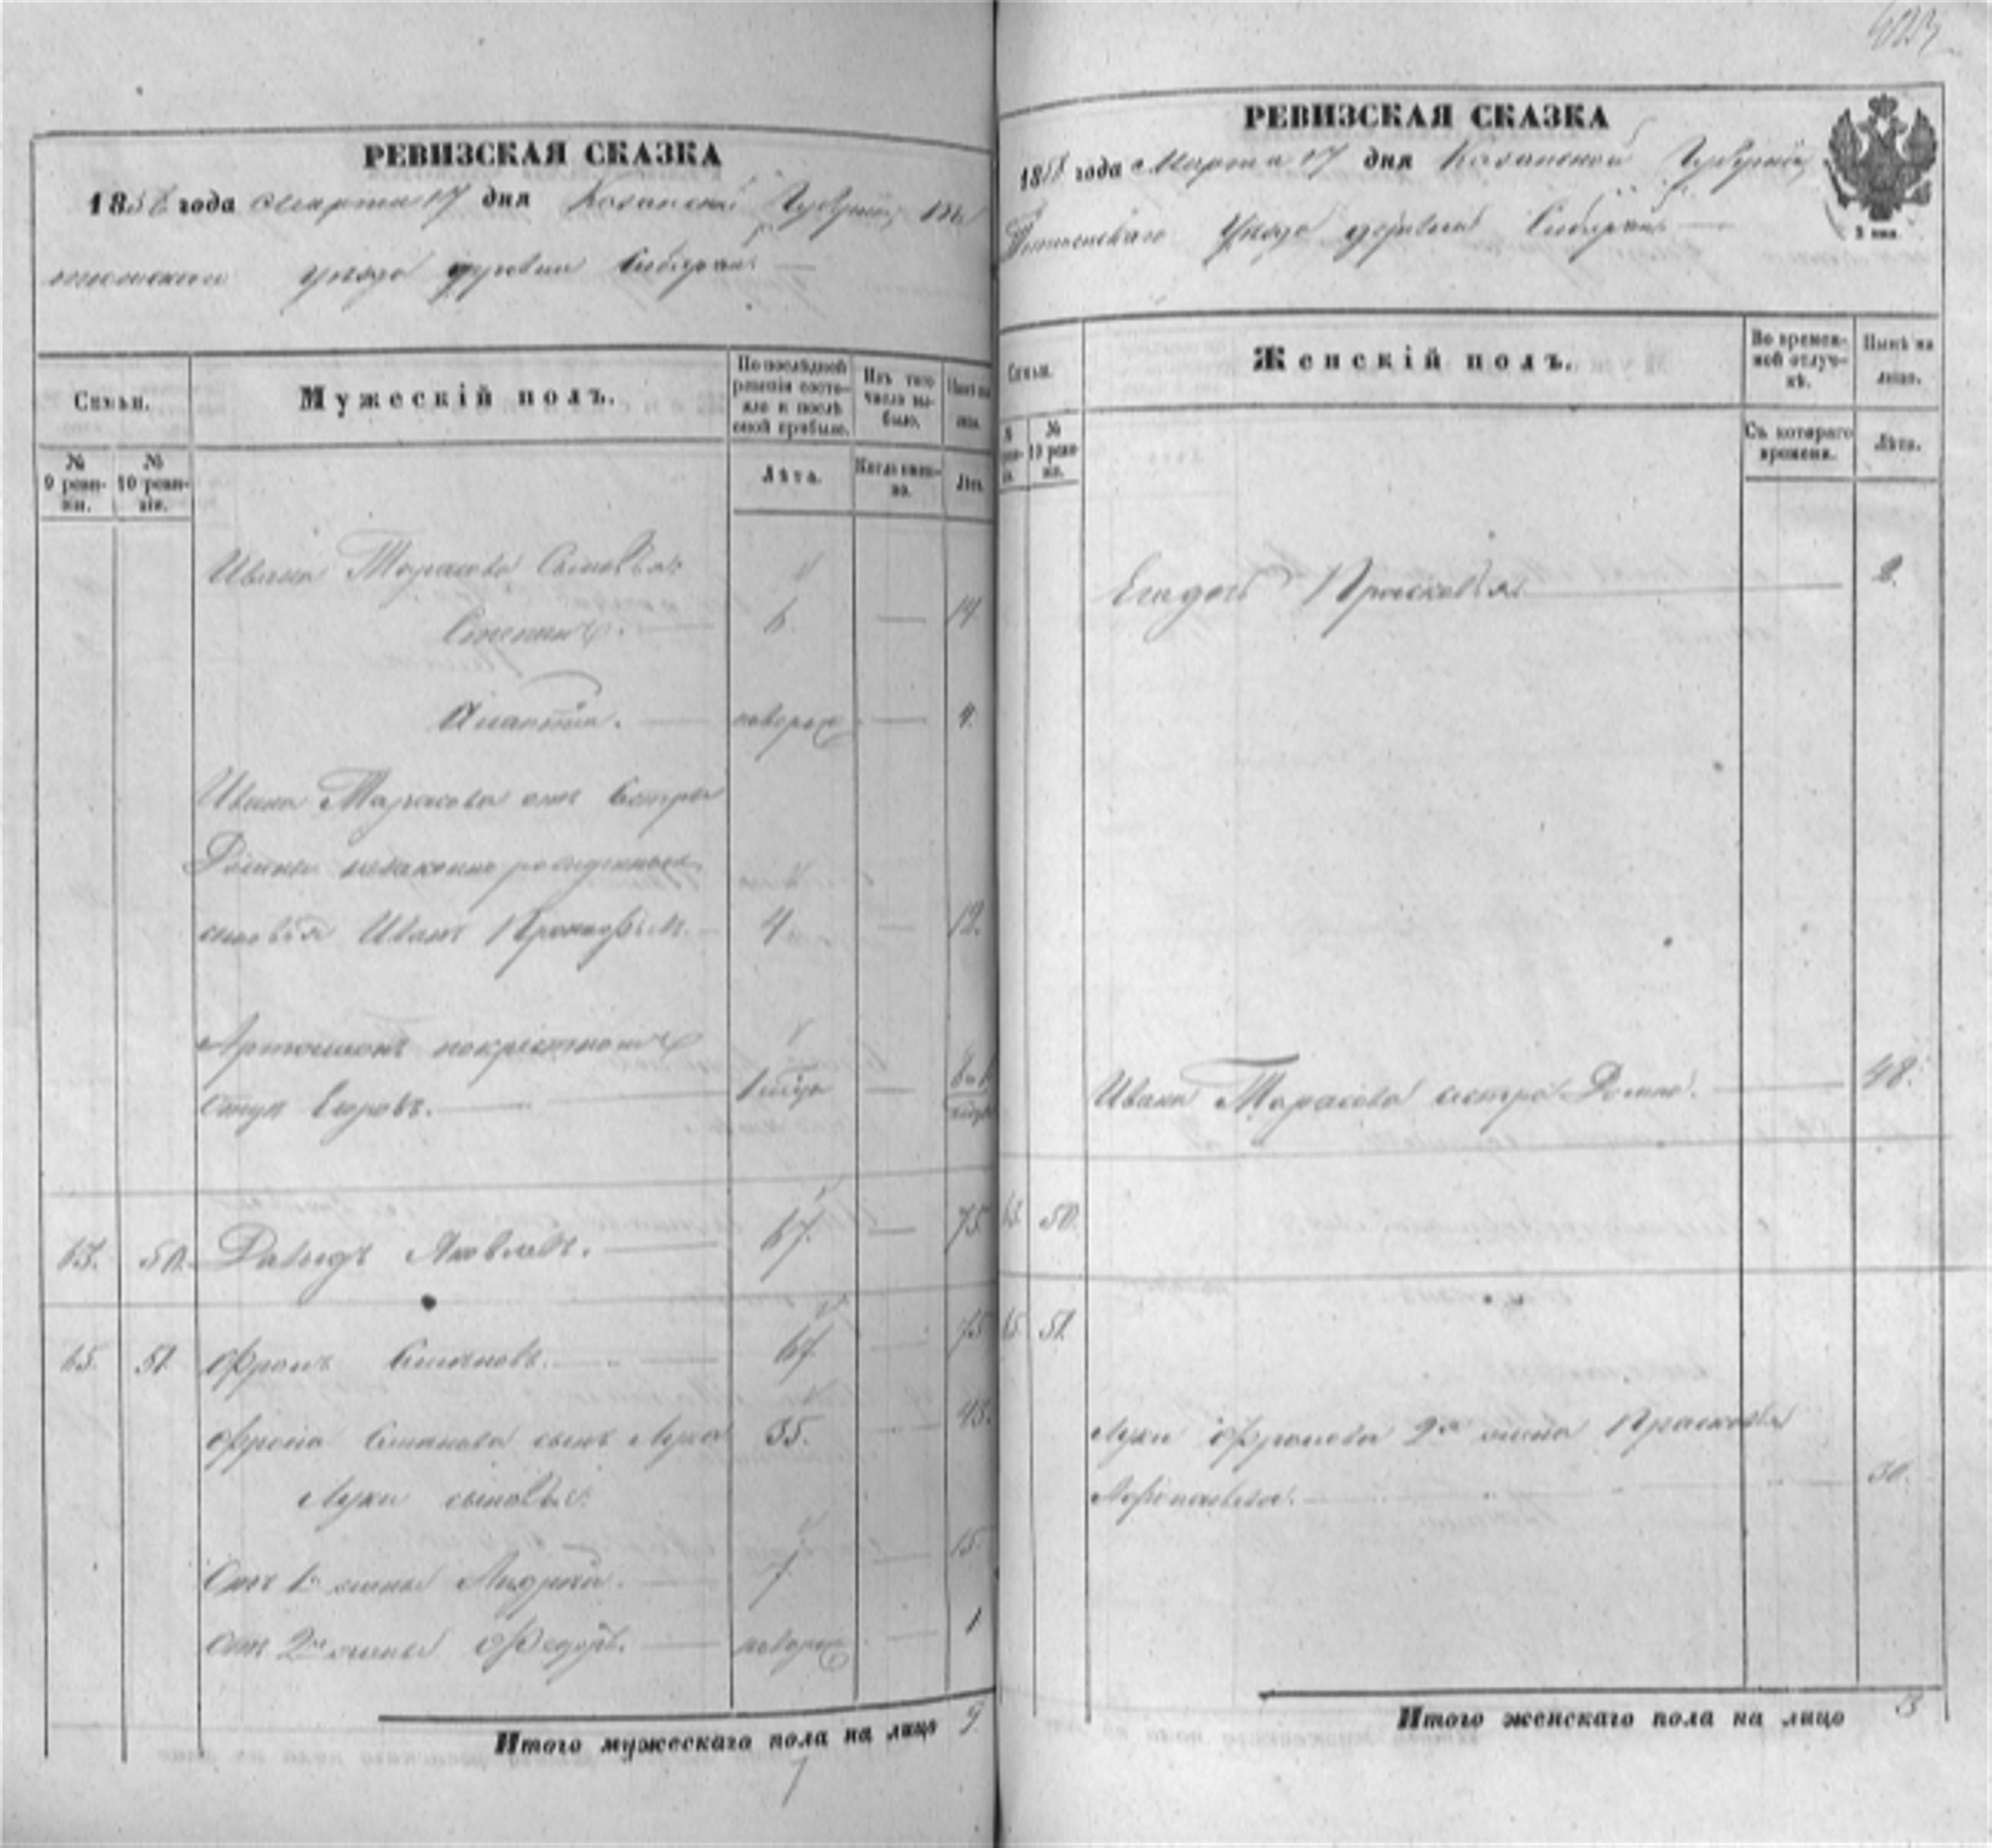 РЕВИЗСКАЯ СКАЗКА
1858 года Марта 17 дня Казанской Губерніи
уезда деревни
Семьи.
Мужескій полъ.
По послѣдней ревизіи состояло и послѣ оной прибыло.
Изъ того числа выбыло.
Нынѣ на лицо.
№ 9 ревизіи.
№ 10 ревизіи.
Лѣта.
Когда именно.
Лѣта.
Ивана Тарасова Сыновья:
Степанъ. 6. 14
новорож 4.
Ивана Тарасова отъ Сестры
Домны незаконно рожденные
сыновья Иванъ Прокофьевъ. 4 12.
Егоровъ.
63. 50. Давыдъ Яковлевъ. 67. 75
65. 51. Фролъ Степановъ. 67. 75
Фрола Степанова сынъ Лука 35. 43.
Луки сыновья:
Отъ 1й жены Андрей. 7 15.
Отъ 2й жены Федоръ. новорож 1
Итого мужескаго пола на лицо 9
7
РЕВИЗСКАЯ СКАЗКА
1858 года Марта 17 дня Казанской Губерніи
уезда деревни
Семьи.
Женскій полъ.
Во временной отлучкѣ.
Нынѣ на лицо.
№ 9 ревизіи.
№ 10 ревизіи.
Съ котораго времени.
Лѣта.
Прасковья 2.
Ивана Тарасова сестра Домна. 48.
63. 50.
65. 51.
Луки Фролова 2я жена Прасковья
30.
Итого женскаго пола на лицо 3